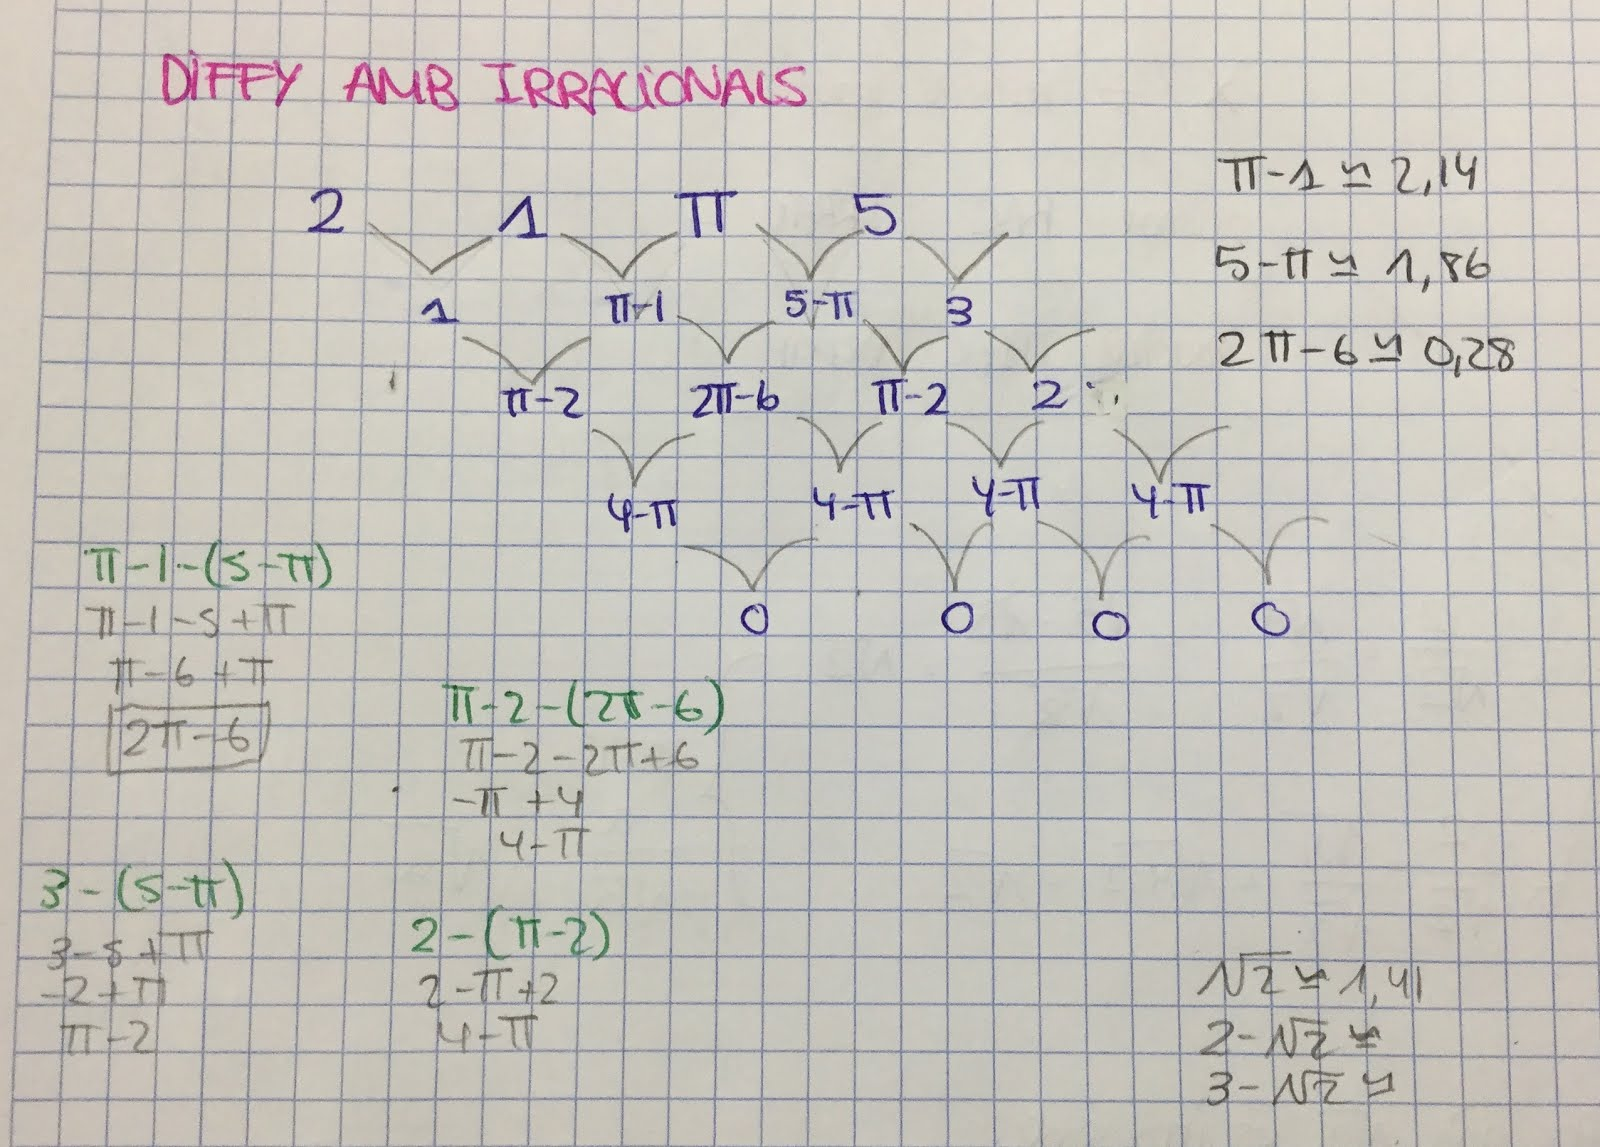 DIFFY AMB IRRACIONALS
2 1 π 5
1 π-1 5-π 3
π-2 2π-6 π-2 2
4-π 4-π 4-π 4-π
0 0 0 0
π-1 ≃ 2,14
5-π ≃ 1,86
2π-6 ≃ 0,28
π-1-(5-π)
π-1-5+π
π-6+π
2π-6
3-(5-π)
3-5+π
-2+π
π-2
π-2-(2π-6)
π-2-2π+6
-π+4
4-π
2-(π-2)
2-π+2
4-π
√2 ≃ 1,41
2-√2 ≃
3-√2 ≃